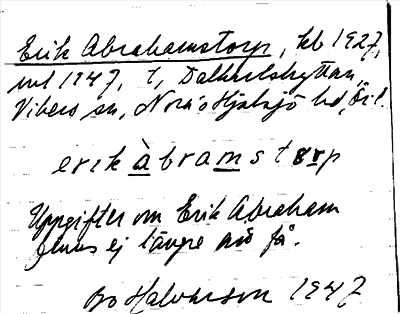 Erik Abrahamstorp, kb 1927,
uul 1947, t, Dalkarlshyttan,
Vikers sn, Nora o Hjulsjö bd, Ör.l.
erik àbramstorp
Uppgifter om Erik Abraham
finns ej längre att få.
Bo Halvarson 1947